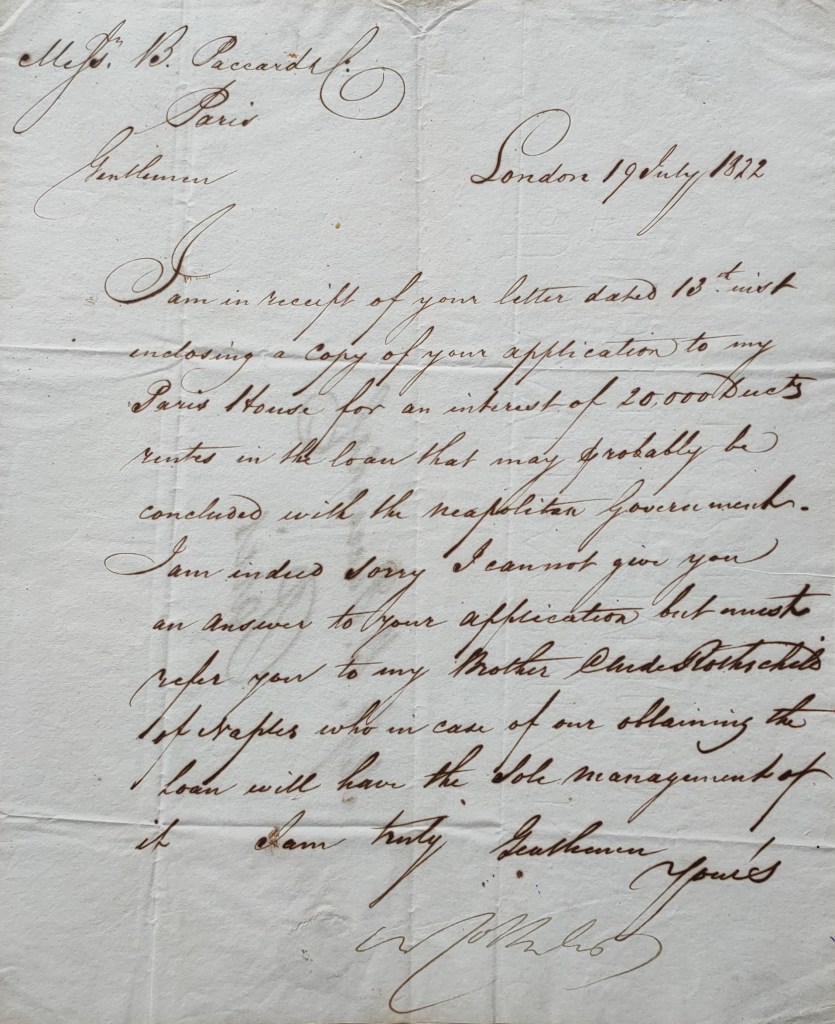 Messrs. B. Paccard & C.
Paris
Gentlemen
London 19 July 1822
I am in receipt of your letter dated 13th inst
enclosing a copy of your application to my
Paris House for an interest of 20,000 Ducts
rentes in the loan that may probably be
concluded with the neapolitan Government.
I am indeed sorry I cannot give you
an answer to your application but must
refer you to my Brother Rothschild
of Naples who in case of our obtaining the
Loan will have the Sole management of
it I am truly Gentlemen
Your's